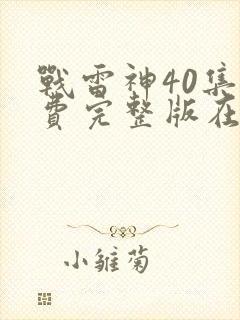 戰雷神40集
費完整版在
小雛菊